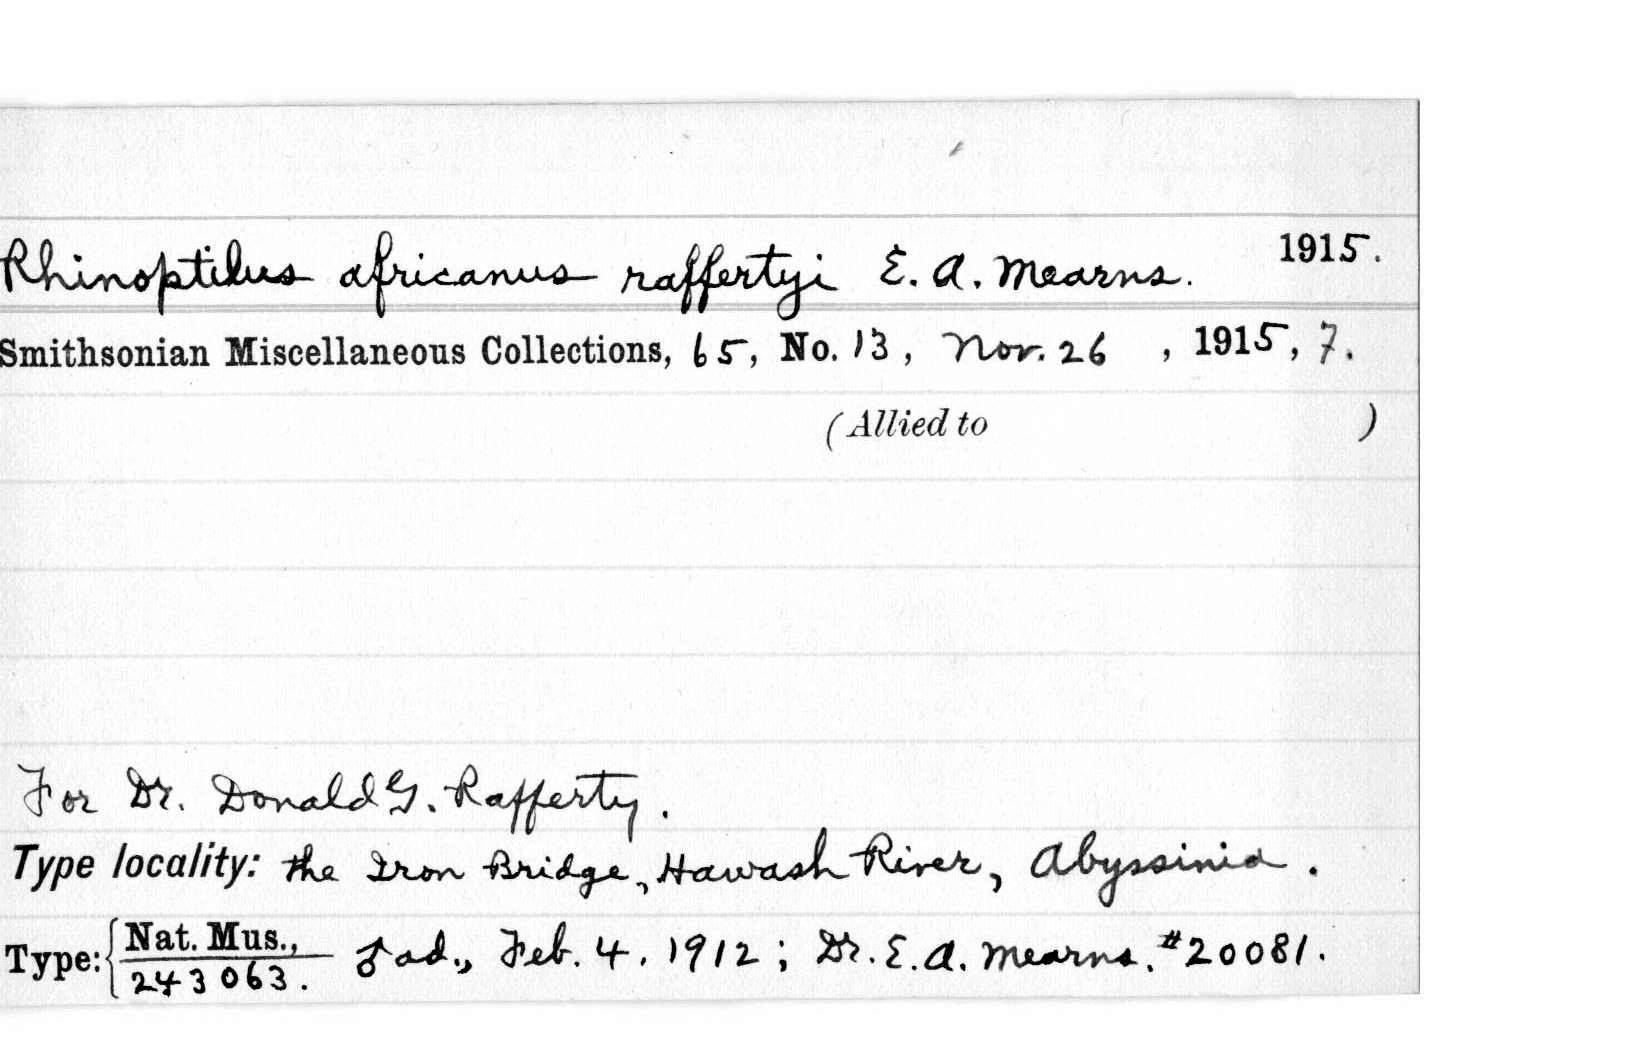 Rhinoptilus africanus raffertyi E. A. Mearns. 1915.
Smithsonian Miscellaneous Collections, 65, No. 13, Nov. 26 , 1915, 7.
(Allied to )
For Dr. Donald G. Rafferty.
Type locality: the Iron Bridge, Hawash River, Abyssinia.
Type: { Nat. Mus., ♂ ad., Feb. 4, 1912; Dr. E. A. Mearns. #20081.
243063.